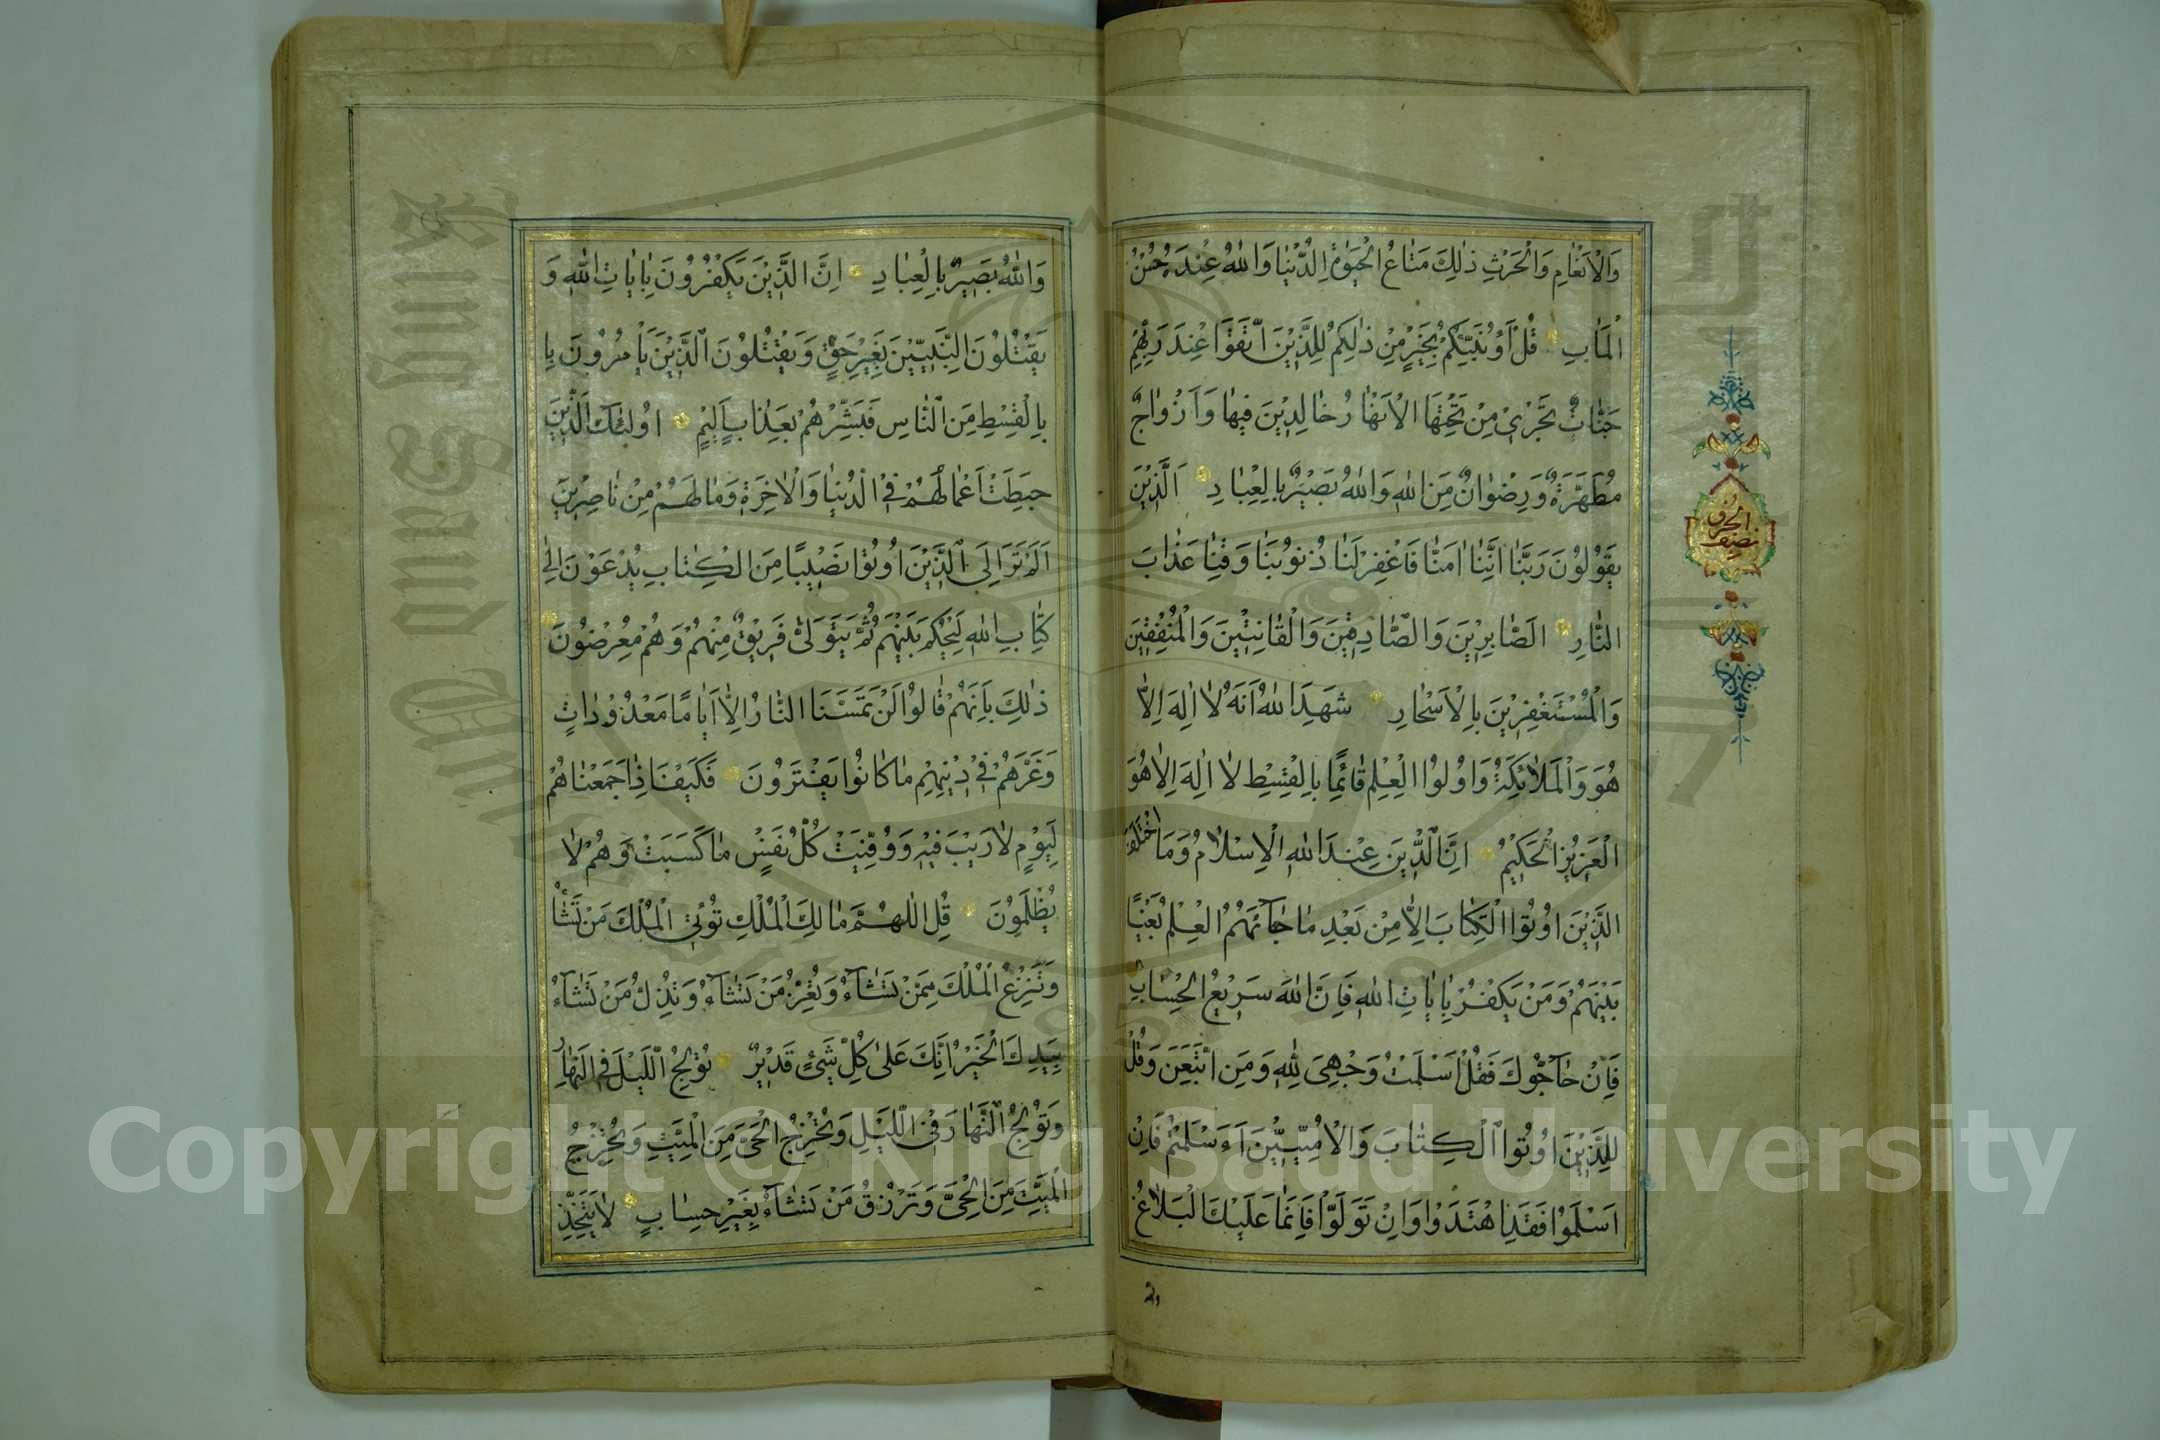 وَالْاَنْعَامِ وَالْحَرْثِ ذٰلِكَ مَتَاعُ الْحَيٰوةِ الدُّنْيَا وَاللّٰهُ عِنْدَهُ حُسْنُ
الْمَاٰبِ قُلْ اَؤُنَبِّئُكُمْ بِخَيْرٍ مِنْ ذٰلِكُمْ لِلَّذِيْنَ اتَّقَوْا عِنْدَ رَبِّهِمْ
جَنَّاتٌ تَجْرِيْ مِنْ تَحْتِهَا الْاَنْهَارُ خَالِدِيْنَ فِيهَا وَاَزْوَاجٌ
مُطَهَّرَةٌ وَرِضْوَانٌ مِنَ اللّٰهِ وَاللّٰهُ بَصِيْرٌ بِالْعِبَادِ اَلَّذِيْنَ
يَقُولُونَ رَبَّنَا اِنَّنَا اٰمَنَّا فَاغْفِرْ لَنَا ذُنُوبَنَا وَقِنَا عَذَابَ
النَّارِ الصَّابِرِيْنَ وَالصَّادِقِيْنَ وَالْقَانِتِيْنَ وَالْمُنْفِقِيْنَ
وَالْمُسْتَغْفِرِيْنَ بِالْاَسْحَارِ شَهِدَ اللّٰهُ اَنَّهُ لَا اِلٰهَ اِلَّا
هُوَ وَالْمَلَائِكَةُ وَاُولُوا الْعِلْمِ قَائِمًا بِالْقِسْطِ لَا اِلٰهَ اِلَّا هُوَ
الْعَزِيْزُ الْحَكِيْمُ اِنَّ الدِّيْنَ عِنْدَ اللّٰهِ الْاِسْلَامُ وَمَا اخْتَلَفَ
الَّذِيْنَ اُوتُوا الْكِتَابَ اِلَّا مِنْ بَعْدِ مَا جَآئَهُمُ الْعِلْمُ بَغْيًا
بَيْنَهُمْ وَمَنْ يَكْفُرْ بِاٰيَاتِ اللّٰهِ فَاِنَّ اللّٰهَ سَرِيْعُ الْحِسَابِ
فَاِنْ حَآجُّوكَ فَقُلْ اَسْلَمْتُ وَجْهِيَ لِلّٰهِ وَمَنِ اتَّبَعَنِ وَقُلْ
لِلَّذِيْنَ اُوتُوا الْكِتَابَ وَالْاُمِّيِّيْنَ ءَاَسْلَمْتُمْ فَاِنْ
اَسْلَمُوْا فَقَدِ اهْتَدَوْا وَاِنْ تَوَلَّوْا فَاِنَّمَا عَلَيْكَ الْبَلَاغُ
نصف الحزب
وَاللّٰهُ بَصِيْرٌ بِالْعِبَادِ اِنَّ الَّذِيْنَ يَكْفُرُونَ بِاٰيَاتِ اللّٰهِ وَ
يَقْتُلُونَ النَّبِيّٖنَ بِغَيْرِ حَقٍّ وَيَقْتُلُونَ الَّذِيْنَ يَاْمُرُونَ بِا
بِالْقِسْطِ مِنَ النَّاسِ فَبَشِّرْهُمْ بِعَذَابٍ اَلِيْمٍ اُولٰئِكَ الَّذِيْنَ
حَبِطَتْ اَعْمَالُهُمْ فِي الدُّنْيَا وَالْاٰخِرَةِ وَمَا لَهُمْ مِنْ نَاصِرِيْنَ
اَلَمْ تَرَ اِلَى الَّذِيْنَ اُوتُوْا نَصِيْبًا مِنَ الْكِتَابِ يُدْعَوْنَ اِلٰى
كِتَابِ اللّٰهِ لِيَحْكُمَ بَيْنَهُمْ ثُمَّ يَتَوَلّٰى فَرِيْقٌ مِنْهُمْ وَهُمْ مُعْرِضُونَ
ذٰلِكَ بِاَنَّهُمْ قَالُوا لَنْ تَمَسَّنَا النَّارُ اِلَّا اَيَّامًا مَعْدُوْدَاتٍ
وَغَرَّهُمْ فِيْ دِيْنِهِمْ مَا كَانُوا يَفْتَرُونَ فَكَيْفَ اِذَا جَمَعْنَاهُمْ
لِيَوْمٍ لَا رَيْبَ فِيْهِ وَوُفِّيَتْ كُلُّ نَفْسٍ مَا كَسَبَتْ وَهُمْ لَا
يُظْلَمُونَ قُلِ اللّٰهُمَّ مَالِكَ الْمُلْكِ تُؤْتِي الْمُلْكَ مَنْ تَشَآءُ
وَتَنْزِعُ الْمُلْكَ مِمَّنْ تَشَآءُ وَتُعِزُّ مَنْ تَشَآءُ وَتُذِلُّ مَنْ تَشَآءُ
بِيَدِكَ الْخَيْرُ اِنَّكَ عَلٰى كُلِّ شَيْءٍ قَدِيْرٌ تُوْلِجُ اللَّيْلَ فِي النَّهَارِ
وَتُوْلِجُ النَّهَارَ فِي اللَّيْلِ وَتُخْرِجُ الْحَيَّ مِنَ الْمَيِّتِ وَتُخْرِجُ
الْمَيِّتَ مِنَ الْحَيِّ وَتَرْزُقُ مَنْ تَشَآءُ بِغَيْرِ حِسَابٍ لَا يَتَّخِذِ
Copyright © King Saud University